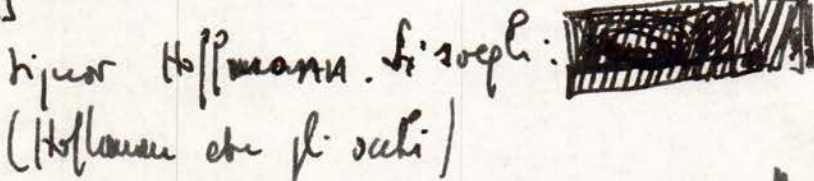 Signor Hoffmann. Si svegli:
(Hoffmann apre gli occhi)